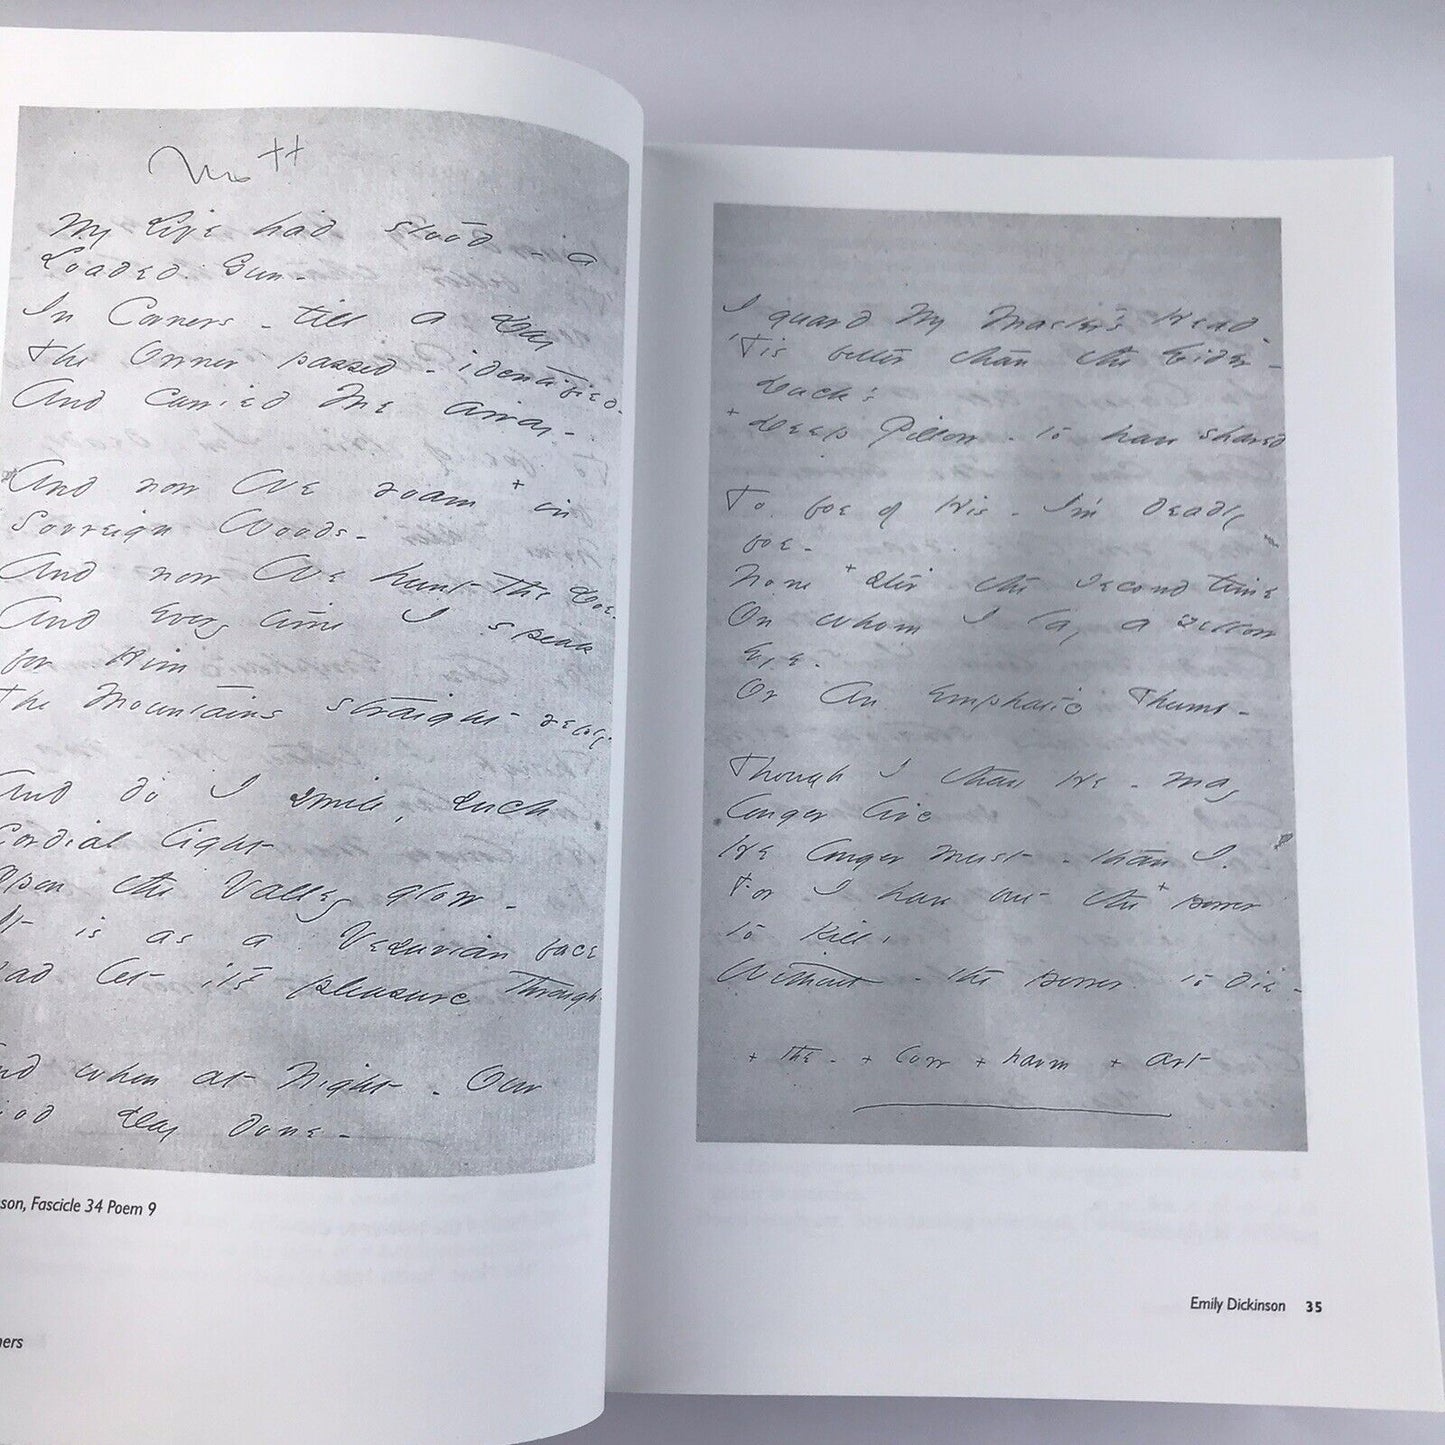 My Life had stood - a
Loaded Gun -
In Corners - till a Day
The Owner passed - identified -
And carried Me away -
And now We roam + in
Sovreign Woods -
And now We hunt the Doe -
And every time I speak
for Him
The Mountains straight reply
And do I smile, such
Cordial light
Upon the Valley glow -
It is as a Vesuvian face
Had let it's pleasure through -
And when at Night - Our
good Day done -
son, Fascicle 34 Poem 9
ners
I guard My Master's Head -
'Tis better than the Eider -
Duck's
+ Deep Pillow - to have shared
To foe of His - I'm deadly
foe -
None + stir the second time
On whom I lay a Yellow
Eye -
Or an emphatic Thumb -
Though I than He - may
longer live
He longer must - than I -
For I have but the + power
to kill,
Without - the power to die -
+ the - + low + harm + art
Emily Dickinson 35